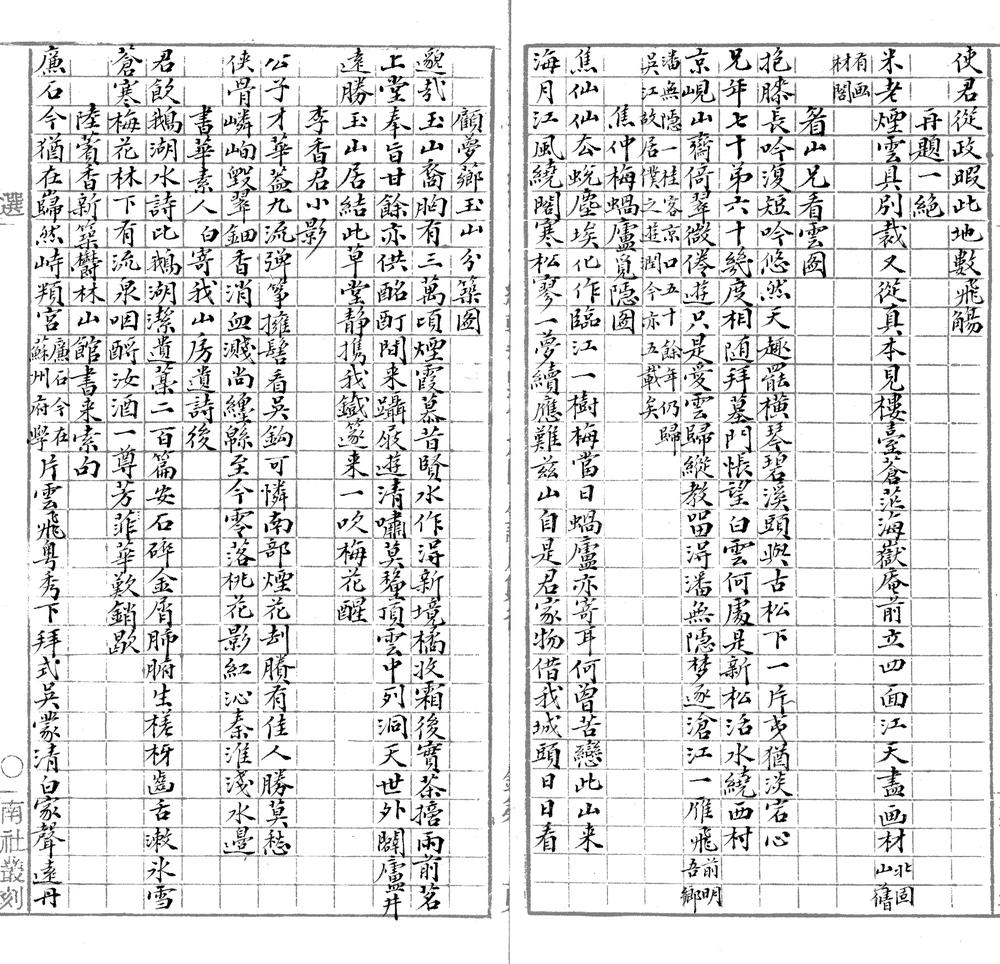 使君從政暇此地數飛觴
再題一絕
米老煙雲具別裁又從真本見樓臺蒼茫海嶽庵前立四面江天盡画材北固山舊
有画材閣
眷山兄看雲圖
抱膝長吟復短吟悠然天趣罷橫琴碧溪頭與古松下一片夷猶淡宕心
兄年七十弟六十幾度相随拜墓門悵望白雲何處是新松活水繞西村
京峴山齋倚翠微倦遊只是愛雲歸縱教畱得潘無隱梦逐滄江一雁飛前明吾鄉
潘無隱一桂客京口五十餘年仍歸吳江故居僕之遊潤今亦五載矣
焦仲梅蝸廬覓隱圖
焦仙仙去蛻塵埃化作臨江一樹梅當日蝸廬亦寄耳何曾苦戀此山来
海月江風繞閣寒松寥一夢續應難兹山自是君家物借我城頭日日看
顧夢薌玉山分築圖
邈哉玉山裔胸有三萬頃煙霞慕昔賢水作得新境橘收霜後實茶揞雨前茗
上堂奉旨甘餘亦供酩酊間来躡屐遊清嘯莫釐頂雲中列洞天世外闢廬井
遠勝玉山居結此草堂靜携我鐵篴来一吹梅花醒
李香君小影
公子才華蓋九流彈箏擁髻看吳鈎可憐南部煙花刦賸有佳人勝莫愁
俠骨嶙峋毀翠鈿香消血濺尚纏綿至今零落桃花影紅沁秦淮淺水邊
書華素人白寄我山房遺詩後
君飲鵝湖水詩比鵝湖潔遺藁二百篇安石碎金屑肺腑生槎枒齒舌漱氷雪
蒼寒梅花林下有流泉咽酹汝酒一尊芳菲華歎銷歇
陸蓍香新築鬱林山館書来索句
廉石今猶在巋然峙頖宮廉石今在蘇州府學片雲飛粵秀下拜式吳蒙清白家聲遠丹
選
南社叢刻